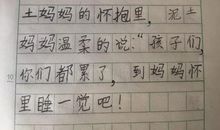 土妈妈的怀抱里，泥土
妈妈温柔的说：“孩子们，
你们都累了，到妈妈怀
里睡一觉吧！